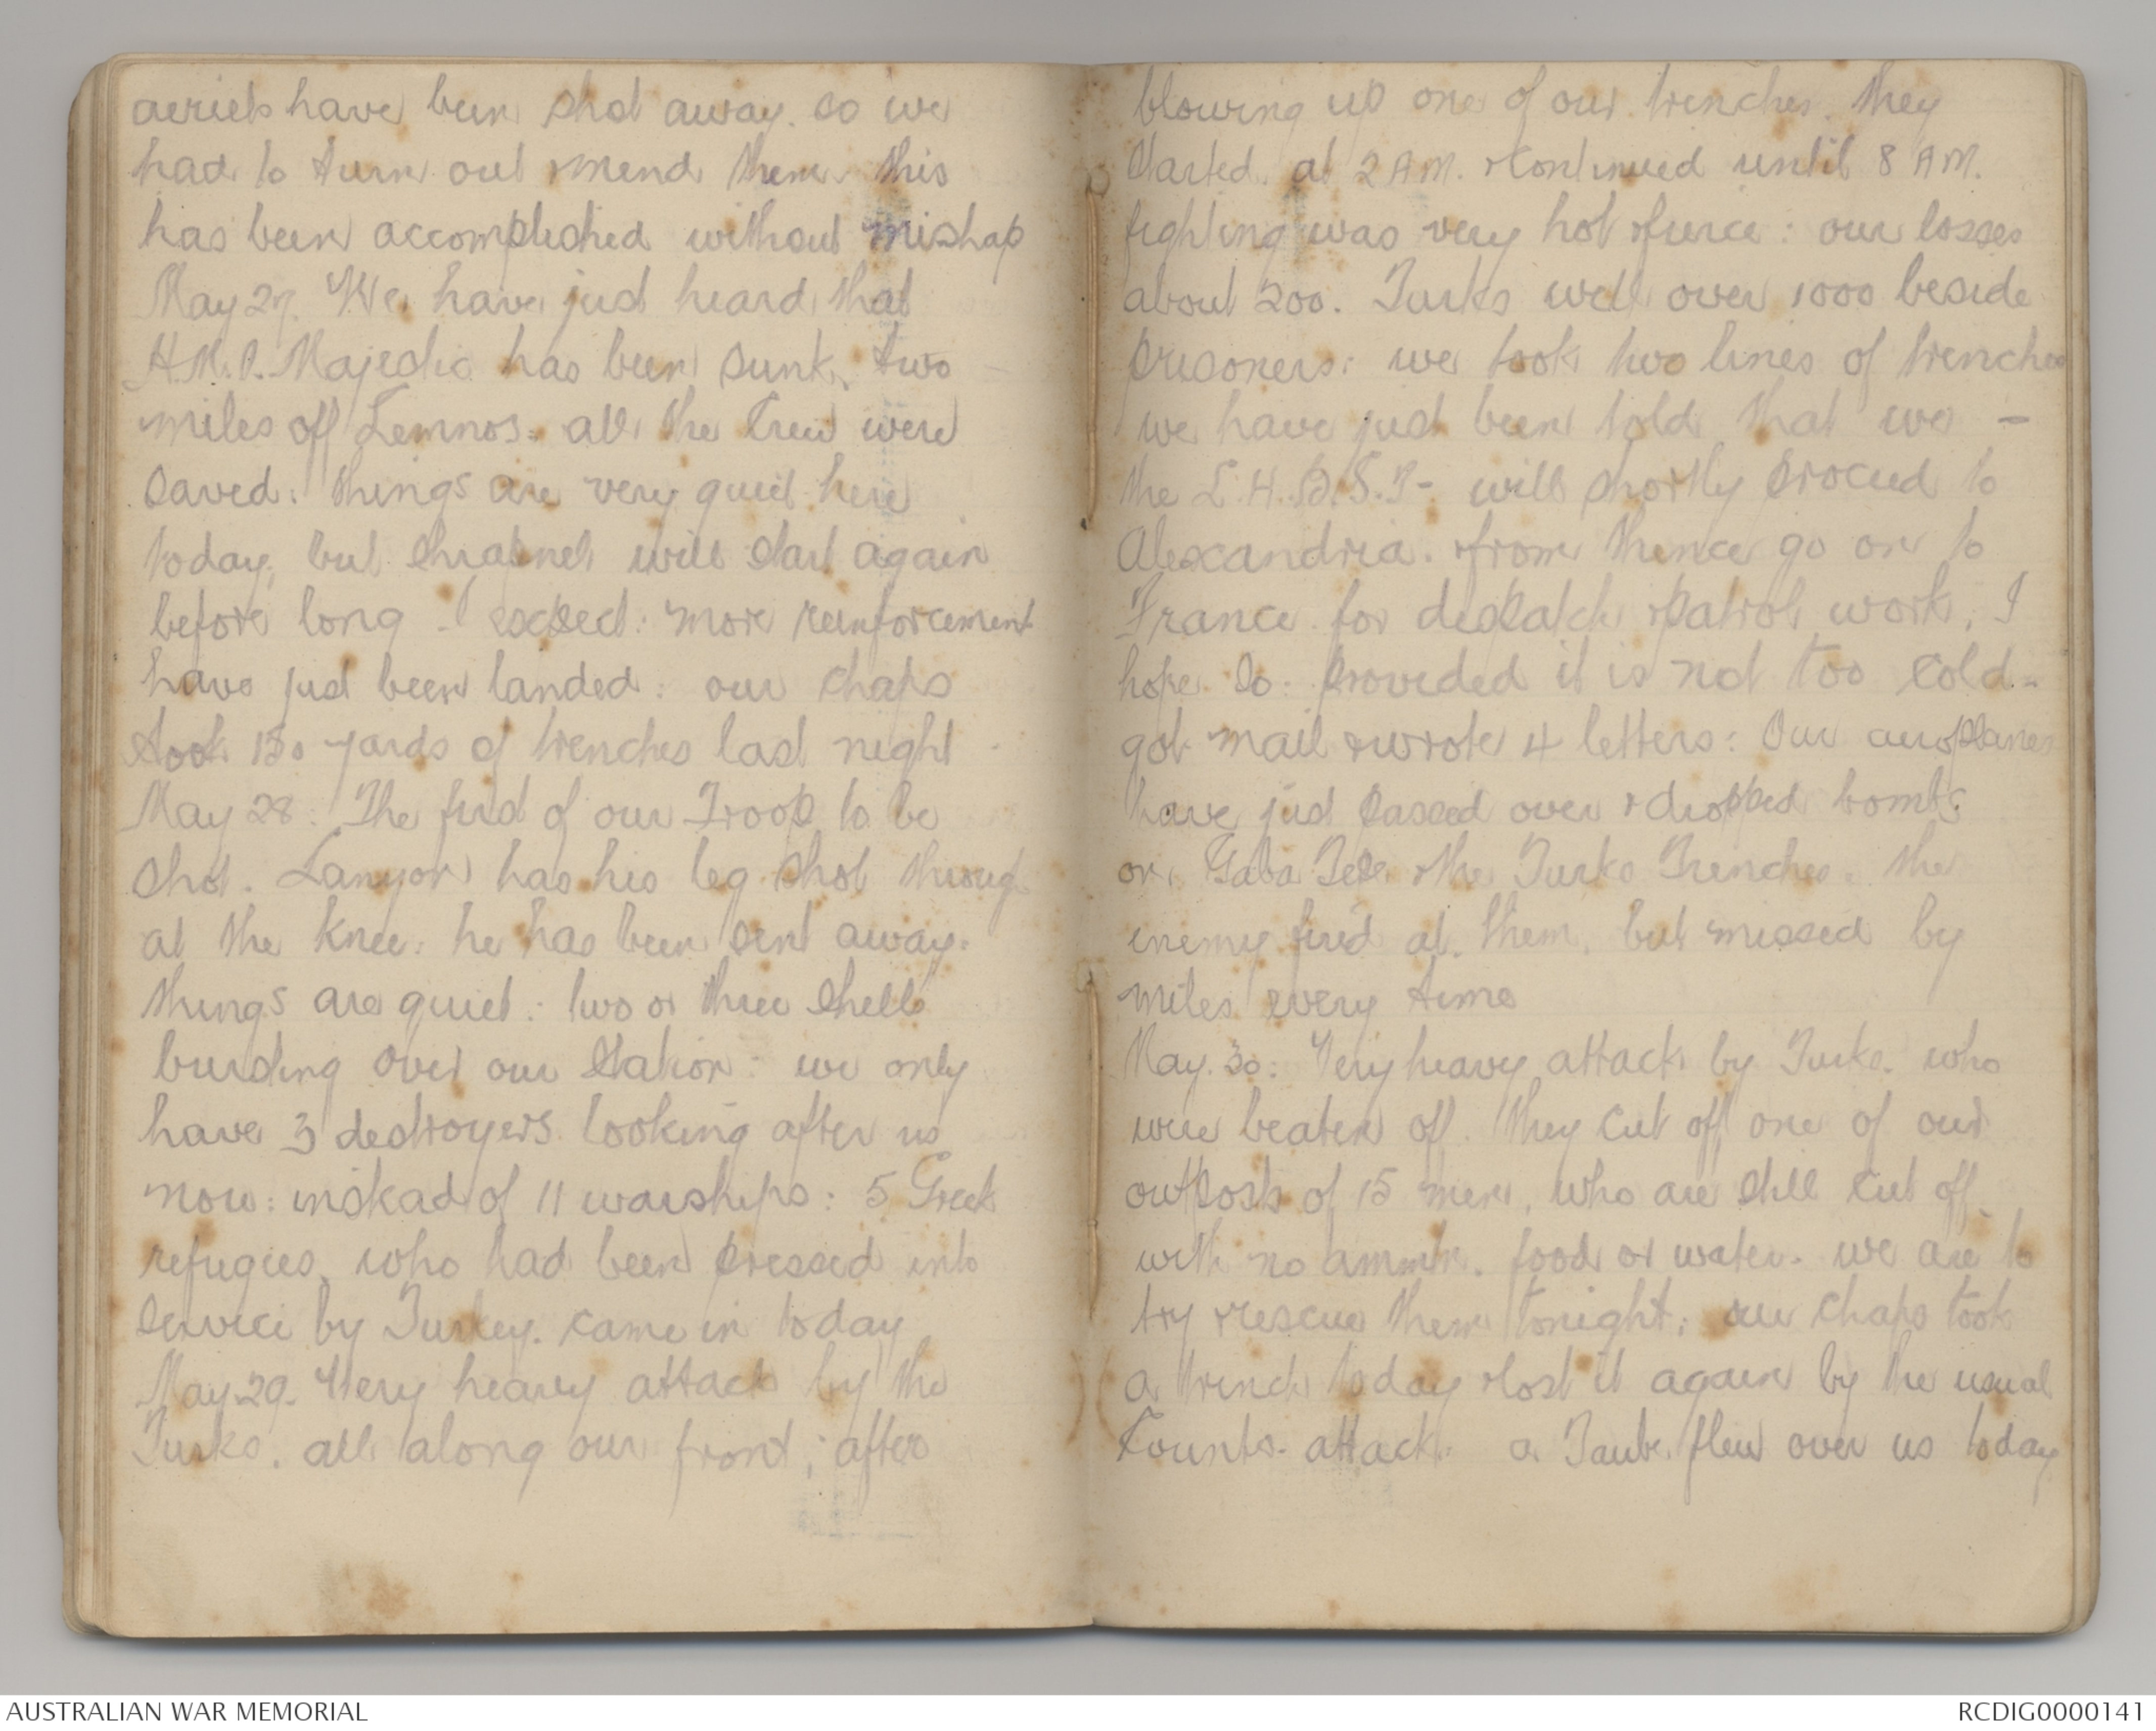 aeriels have been shot away. so we
had to turn out & mend them this
has been accomplished without mishap
May 27. We have just heard that
H.M.S. Majestic has been sunk, two
miles off Lemnos. all the Crew were
saved: things are very quiet here
today, but shrapnel will start again
before long I expect: more reinforcement
have just been landed: our chaps
took 150 yards of trenches last night
May 28: The first of our Troop to be
shot. Lanyon has his leg shot through
at the knee: he has been sent away.
things are quiet: two or three shells
bursting over our station: we only
have 3 destroyers looking after us
now: instead of 11 warships: 5 Greek
refugees, who had been pressed into
service by Turkey. came in today
May 29. Very heavy attack by the
Turks. all along our front; after
blowing up one of our trenches. they
started at 2 AM. & continued until 8 AM.
fighting was very hot & fierce: our losses
about 200. Turks well over 1000 beside
prisoners: we took two lines of trenches
we have just been told that we -
the L.H.B.S.T- will shortly proceed to
Alexandria. & from thence go on to
France for despatch & patrol work, I
hope so. provided it is not too cold-
got mail & wrote 4 letters: Our aeroplanes
have just passed over & dropped bombs
on Gaba Tepe & the Turks Trenches. the
enemy fired at them, but missed by
miles every time
May. 30: Very heavy attack by Turks. who
were beaten off. They cut off one of our
outposts of 15 men, who are still cut off
with no ammtn. food or water. we are to
try & rescue them tonight; our chaps took
a trench today & lost it again by the usual
Counter-attack. a Taube flew over us today
AUSTRALIAN WAR MEMORIAL
RCDIG0000141